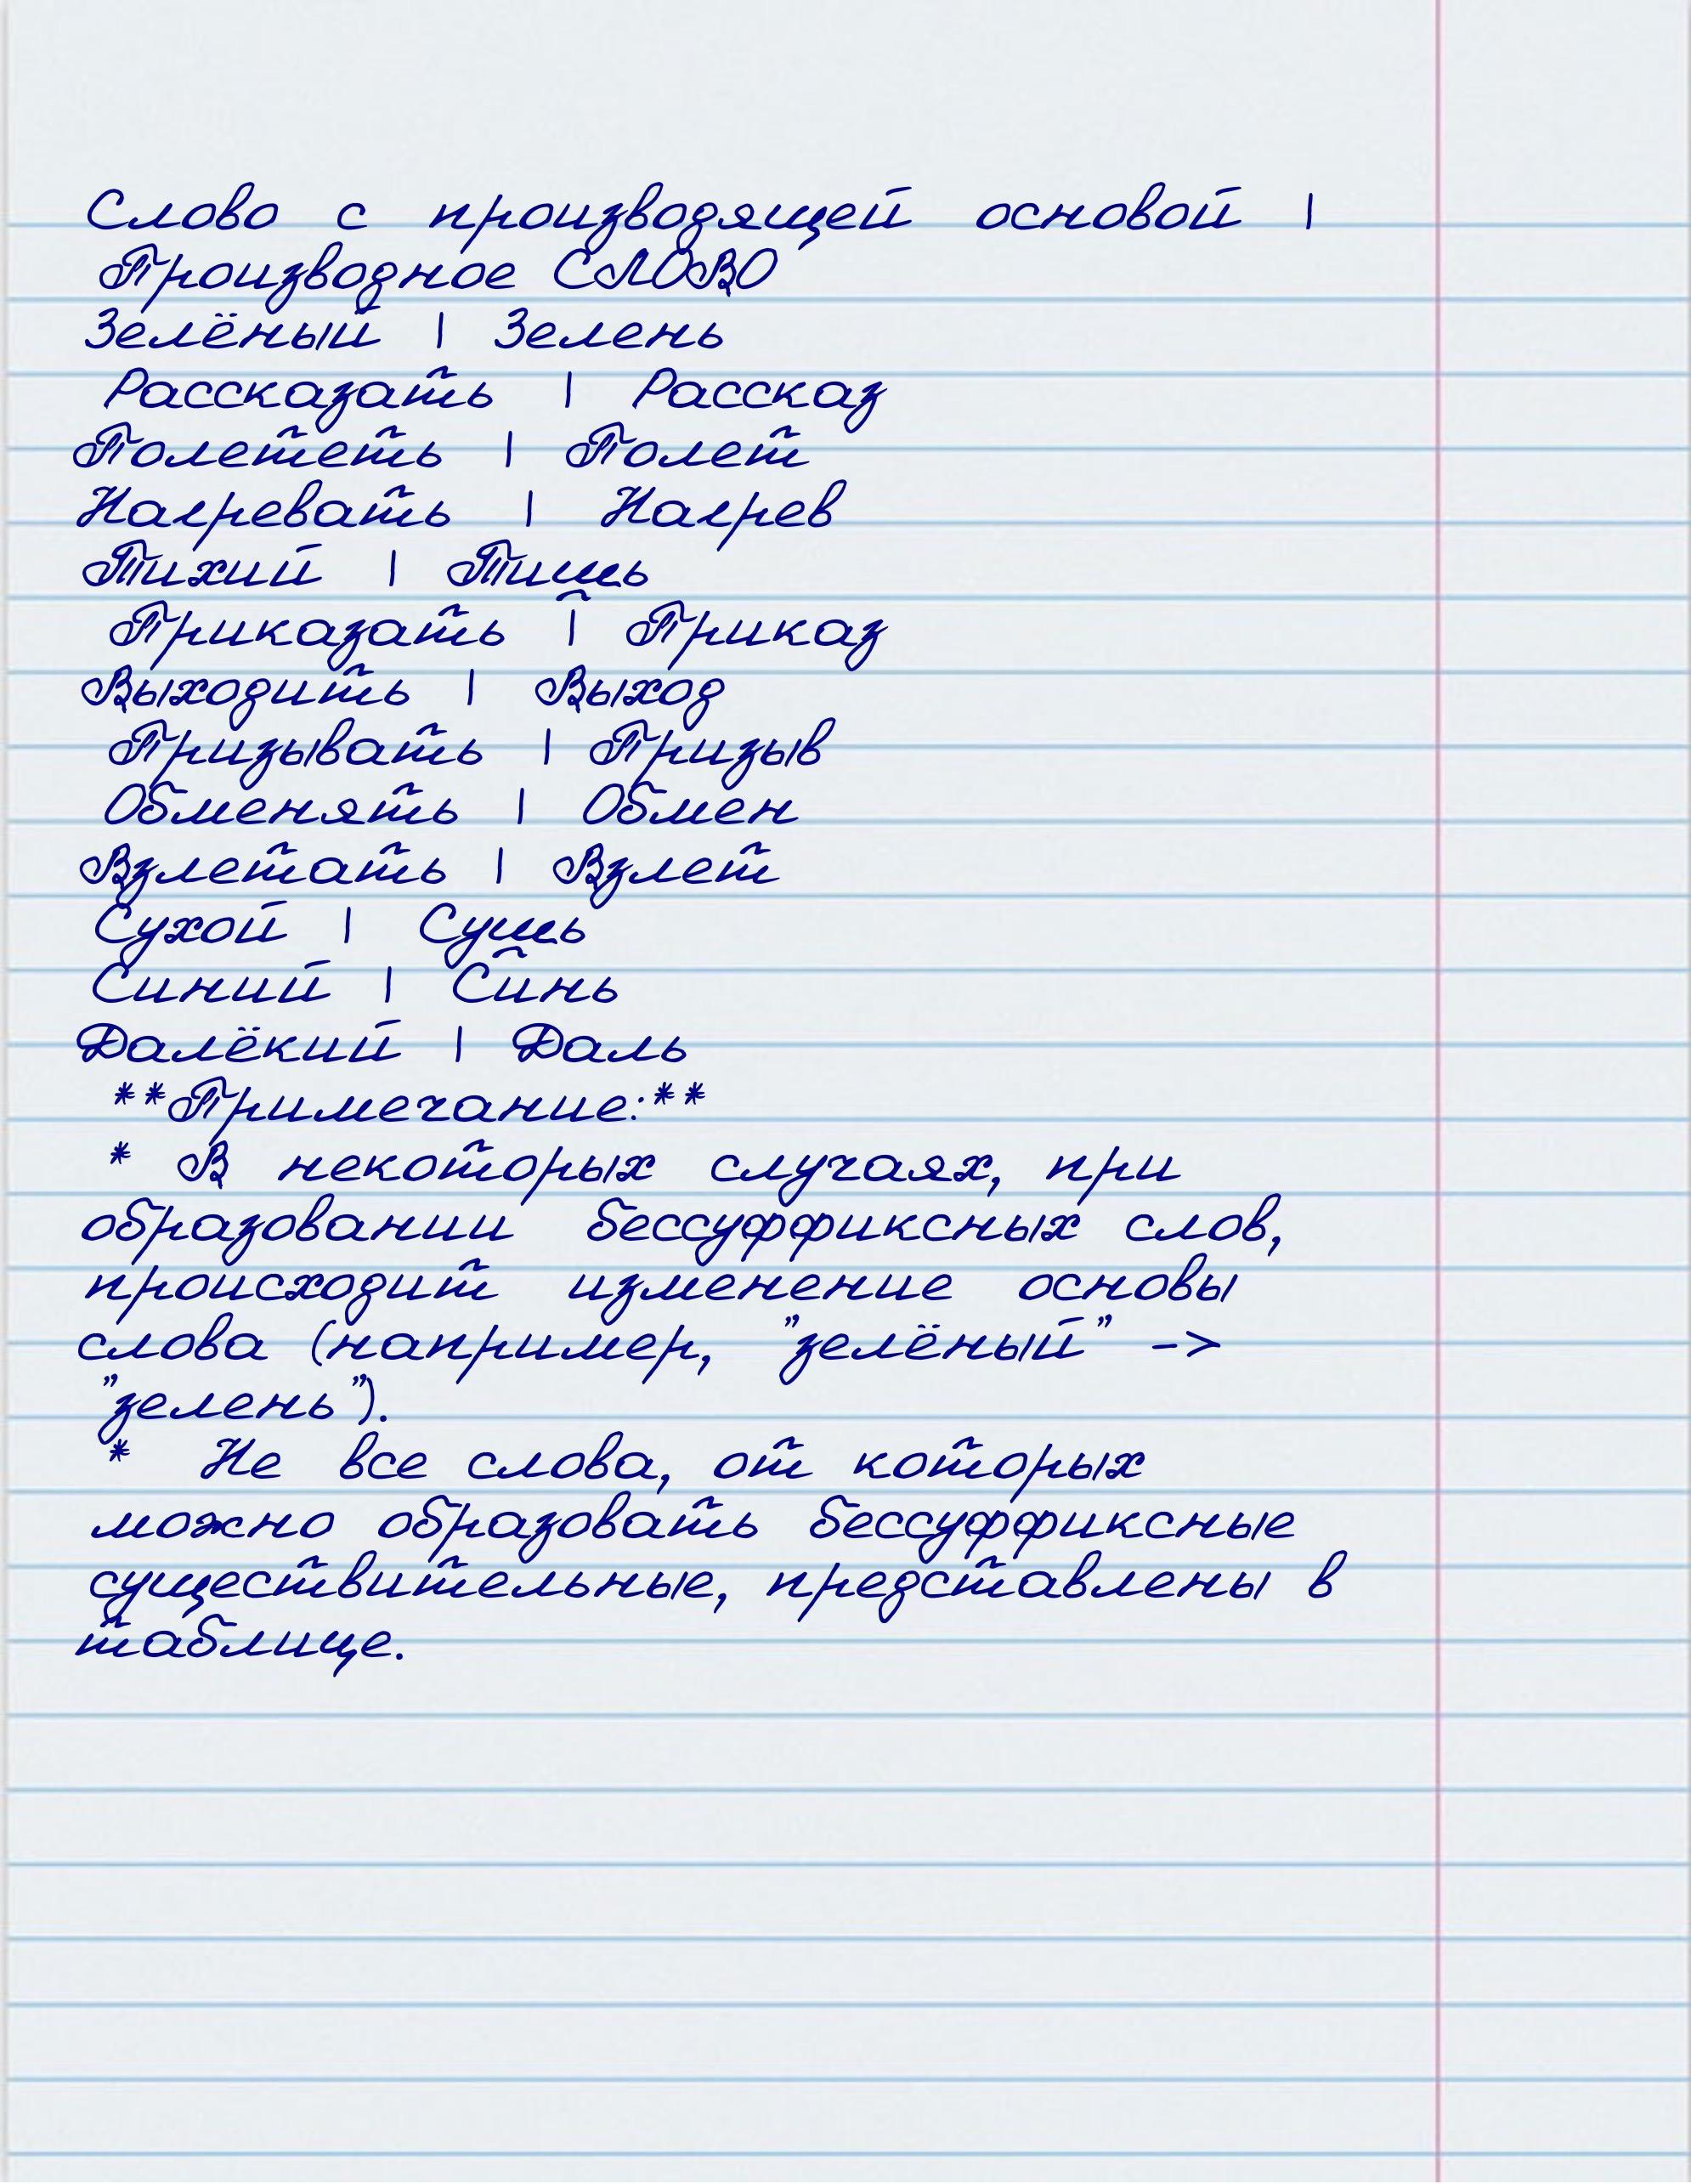 Слово с производящей основой |
Производное СЛОВО
Зелёный | Зелень
Рассказать | Рассказ
Полететь | Полет
Нагревать | Нагрев
Тихий | Тишь
Приказать | Приказ
Выходить | Выход
Призывать | Призыв
Обменять | Обмен
Взлетать | Взлет
Сухой | Сушь
Синий | Синь
Далёкий | Даль
**Примечание:**
* В некоторых случаях, при
образовании бессуффиксных слов,
происходит изменение основы
слова (например, "зелёный" ->
"зелень").
* Не все слова, от которых
можно образовать бессуффиксные
существительные, представлены в
таблице.